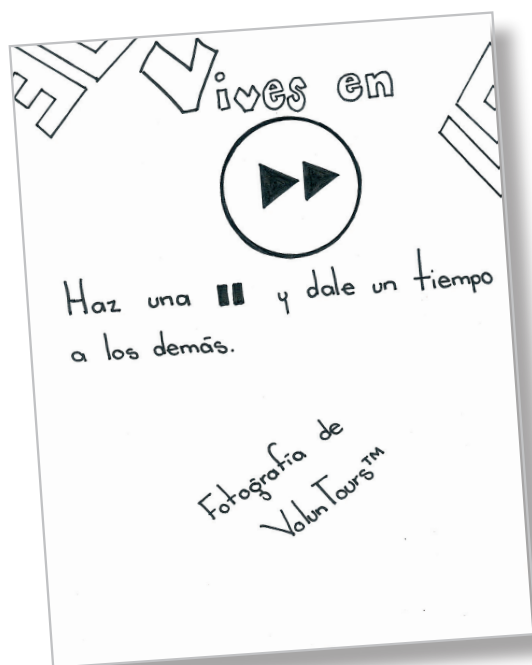 Vives en
Haz una y dale un tiempo
a los demás.
Fotografía de
VolunTours™